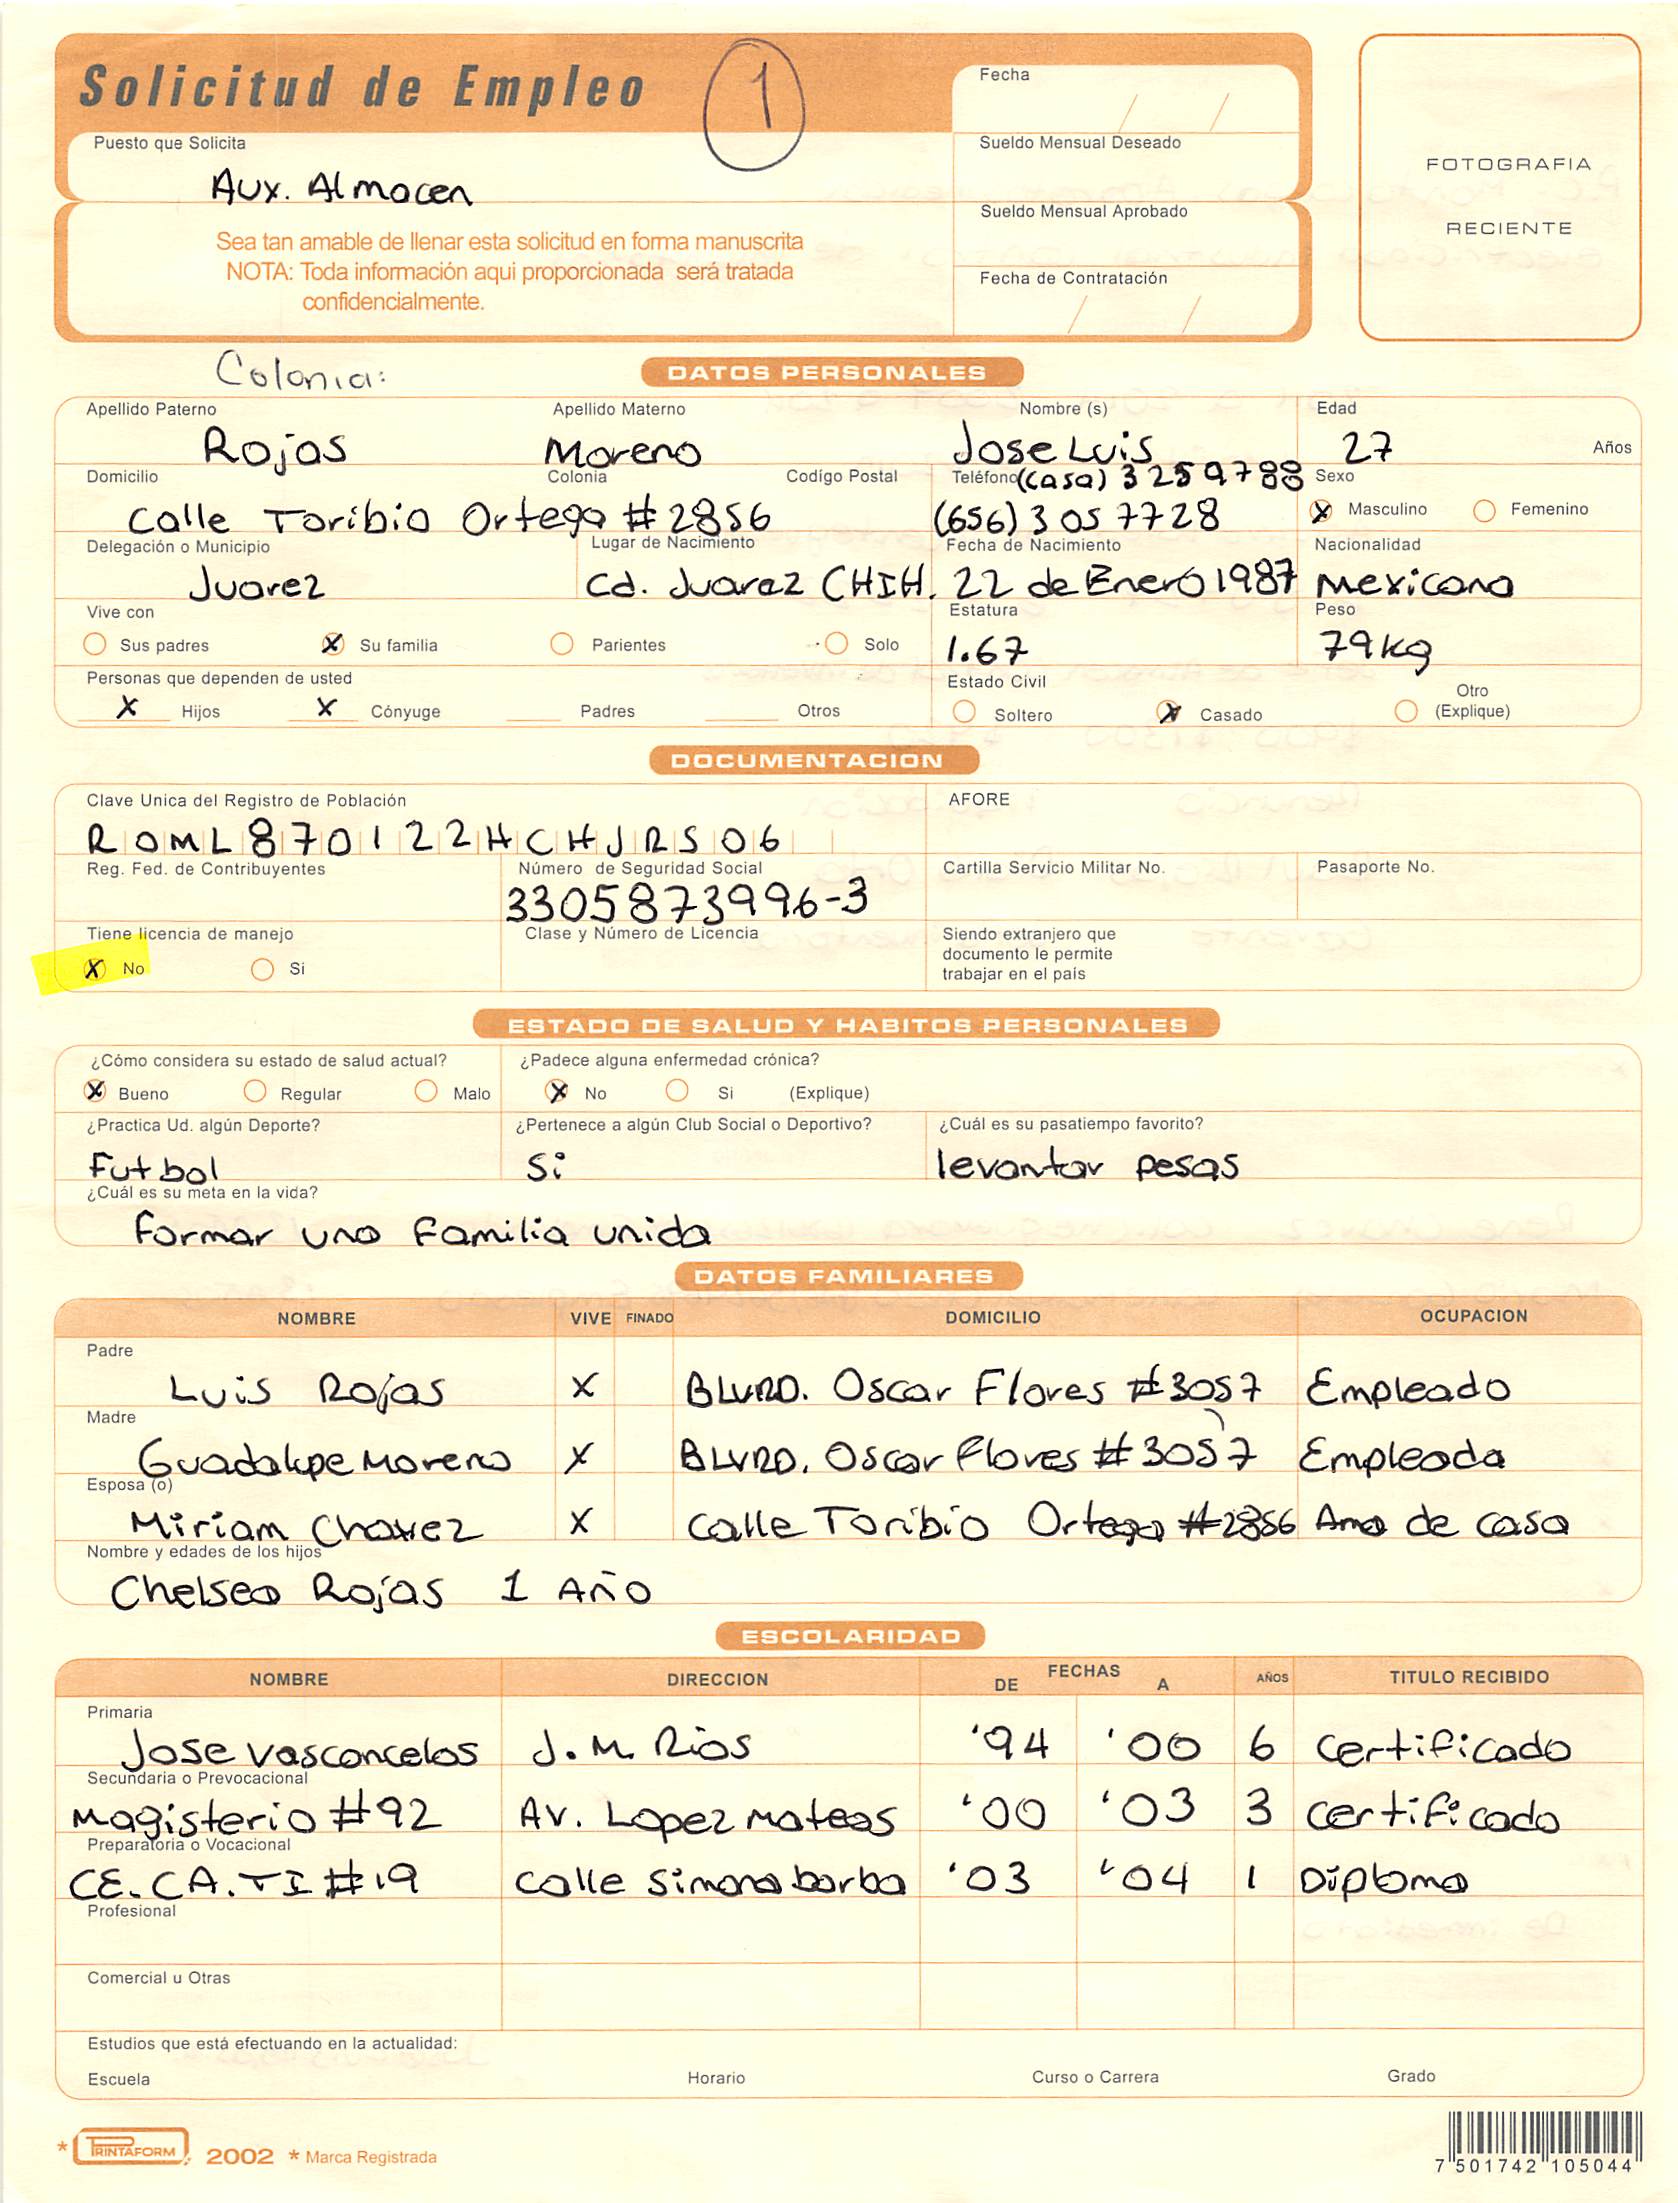 Solicitud de Empleo
1
Fecha
/ /
Puesto que Solicita
Aux. Almacen
Sueldo Mensual Deseado
Sueldo Mensual Aprobado
Fecha de Contratación
/ /
FOTOGRAFIA
RECIENTE
Sea tan amable de llenar esta solicitud en forma manuscrita
NOTA: Toda información aqui proporcionada será tratada
confidencialmente.
Colonia:
DATOS PERSONALES
Apellido Paterno Apellido Materno Nombre (s) Edad
Rojas Moreno Jose Luis 27 Años
Domicilio Colonia Codígo Postal Teléfono (casa) 3 259788 Sexo
Calle Toribio Ortega #2856 (656) 3 05 7728 X Masculino Femenino
Delegación o Municipio Lugar de Nacimiento Fecha de Nacimiento Nacionalidad
Juarez Cd. Juarez CHIH. 22 de Enero 1987 Mexicana
Vive con Estatura Peso
Sus padres X Su familia Parientes Solo 1.67 79 kg
Personas que dependen de usted Estado Civil
X Hijos X Cónyuge Padres Otros Soltero X Casado Otro (Explique)
DOCUMENTACION
Clave Unica del Registro de Población AFORE
ROML870122HCHJRS06
Reg. Fed. de Contribuyentes Número de Seguridad Social Cartilla Servicio Militar No. Pasaporte No.
3305873996-3
Tiene licencia de manejo Clase y Número de Licencia Siendo extranjero que
documento le permite
X No Si trabajar en el país
ESTADO DE SALUD Y HABITOS PERSONALES
¿Cómo considera su estado de salud actual? ¿Padece alguna enfermedad crónica?
X Bueno Regular Malo X No Si (Explique)
¿Practica Ud. algún Deporte? ¿Pertenece a algún Club Social o Deportivo? ¿Cuál es su pasatiempo favorito?
Futbol Si levantar pesas
¿Cuál es su meta en la vida?
Formar una Familia unida
DATOS FAMILIARES
NOMBRE VIVE FINADO DOMICILIO OCUPACION
Padre
Luis Rojas X BLVRD. Oscar Flores #3057 Empleado
Madre
Guadalupe Moreno X BLVRD. Oscar Flores #3057 Empleada
Esposa (o)
Miriam Chavez X Calle Toribio Ortega #2856 Ama de casa
Nombre y edades de los hijos
Chelsea Rojas 1 Año
ESCOLARIDAD
NOMBRE DIRECCION FECHAS AÑOS TITULO RECIBIDO
DE A
Primaria
Jose Vasconcelos J. M. Rios '94 '00 6 Certificado
Secundaria o Prevocacional
Magisterio #92 AV. Lopez Mateos '00 '03 3 Certificado
Preparatoria o Vocacional
CE.CA.TI #19 Calle Simona barba '03 '04 1 Diploma
Profesional
Comercial u Otras
Estudios que está efectuando en la actualidad:
Escuela Horario Curso o Carrera Grado
* PRINTAFORM 2002 * Marca Registrada
7 501742 105044